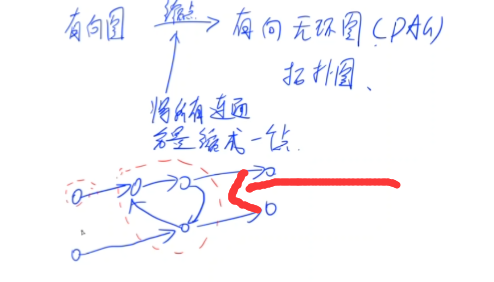 有向图 缩点 有向无环图(DAG)
拓扑图、
将所有连通
分量缩成一点.